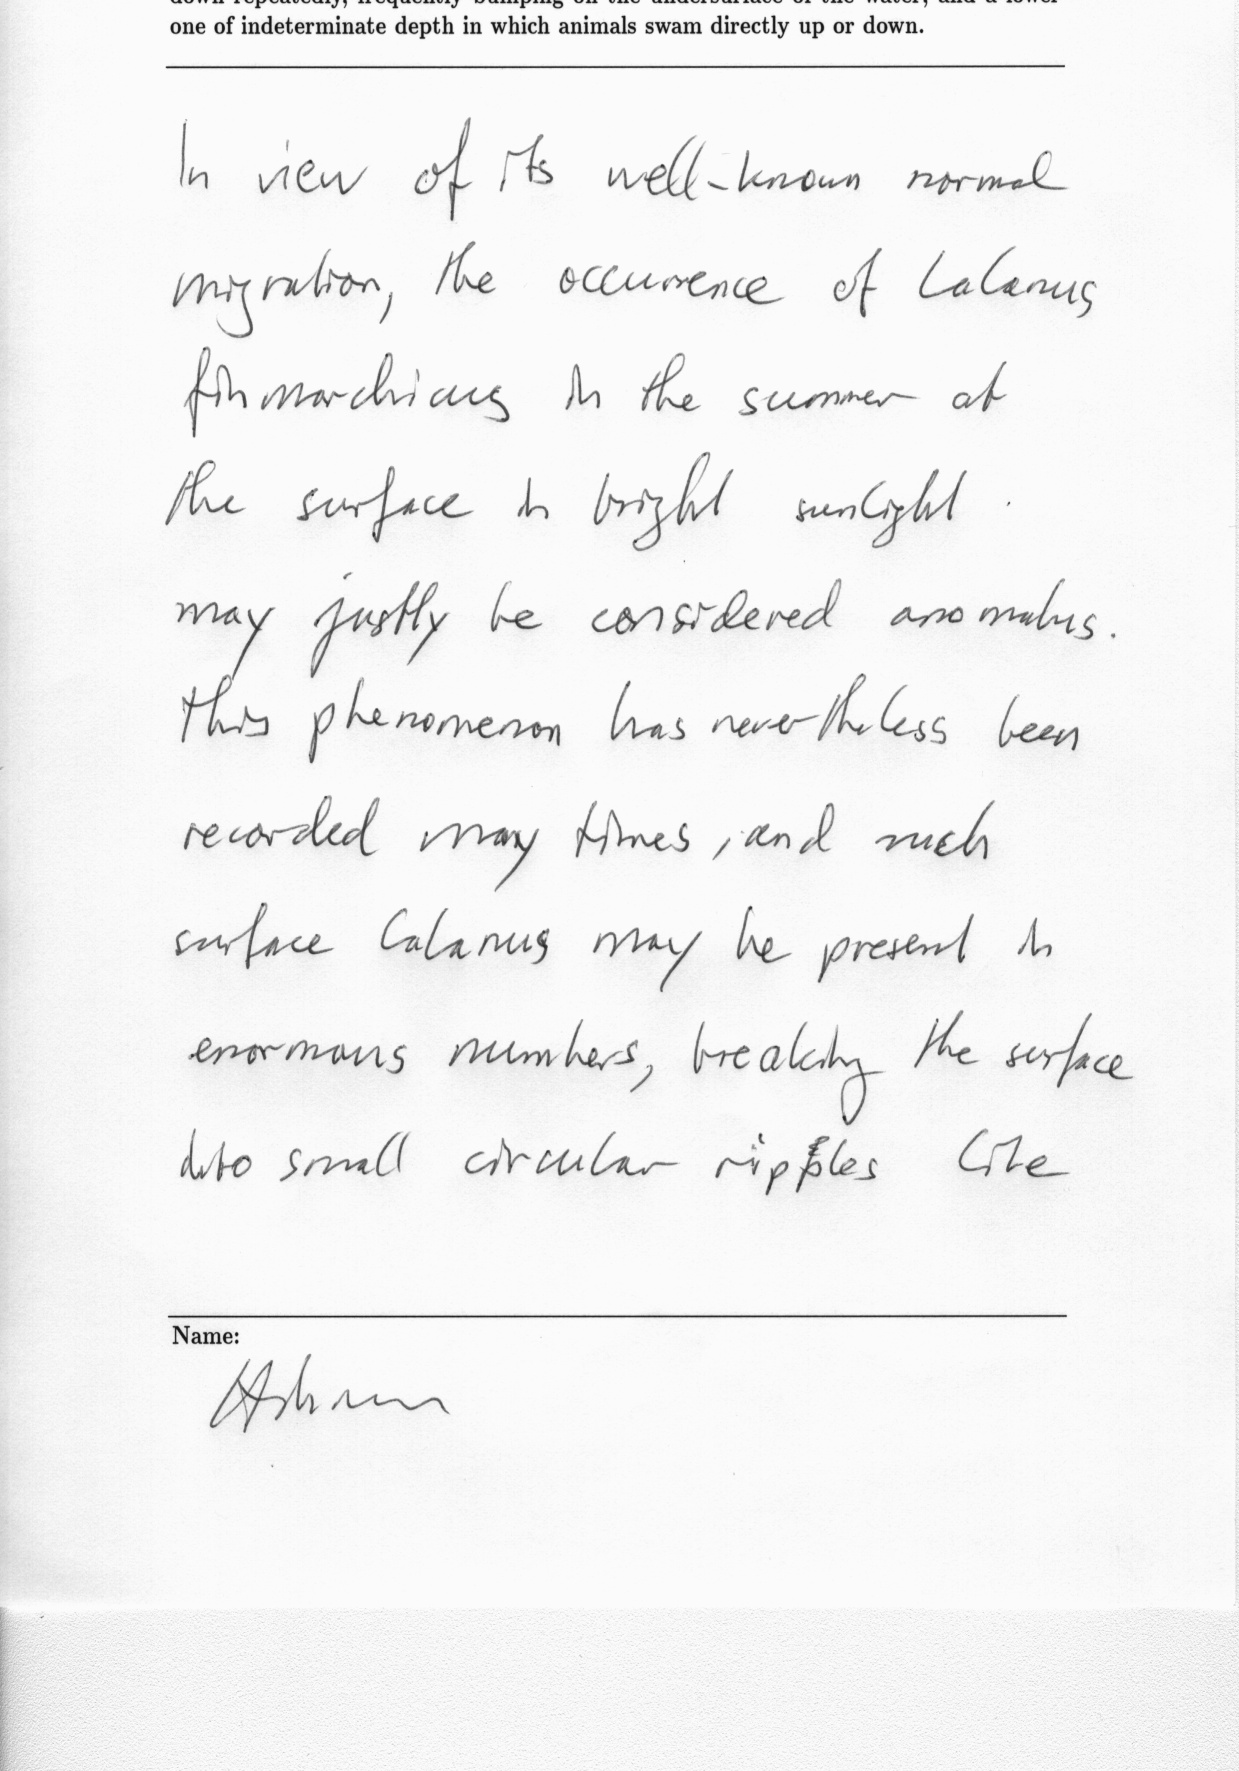 down repeatedly, frequently bumping on the undersurface of the water, and a lower
one of indeterminate depth in which animals swam directly up or down.
In view of its well-known normal
migration, the occurrence of Calanus
finmarchicus in the summer at
the surface in bright sunlight
may justly be considered anomalus.
This phenomenon has nevertheless been
recorded may times, and such
surface Calanus may be present in
enormous numbers, breaking the surface
into small circular ripples like
Name: